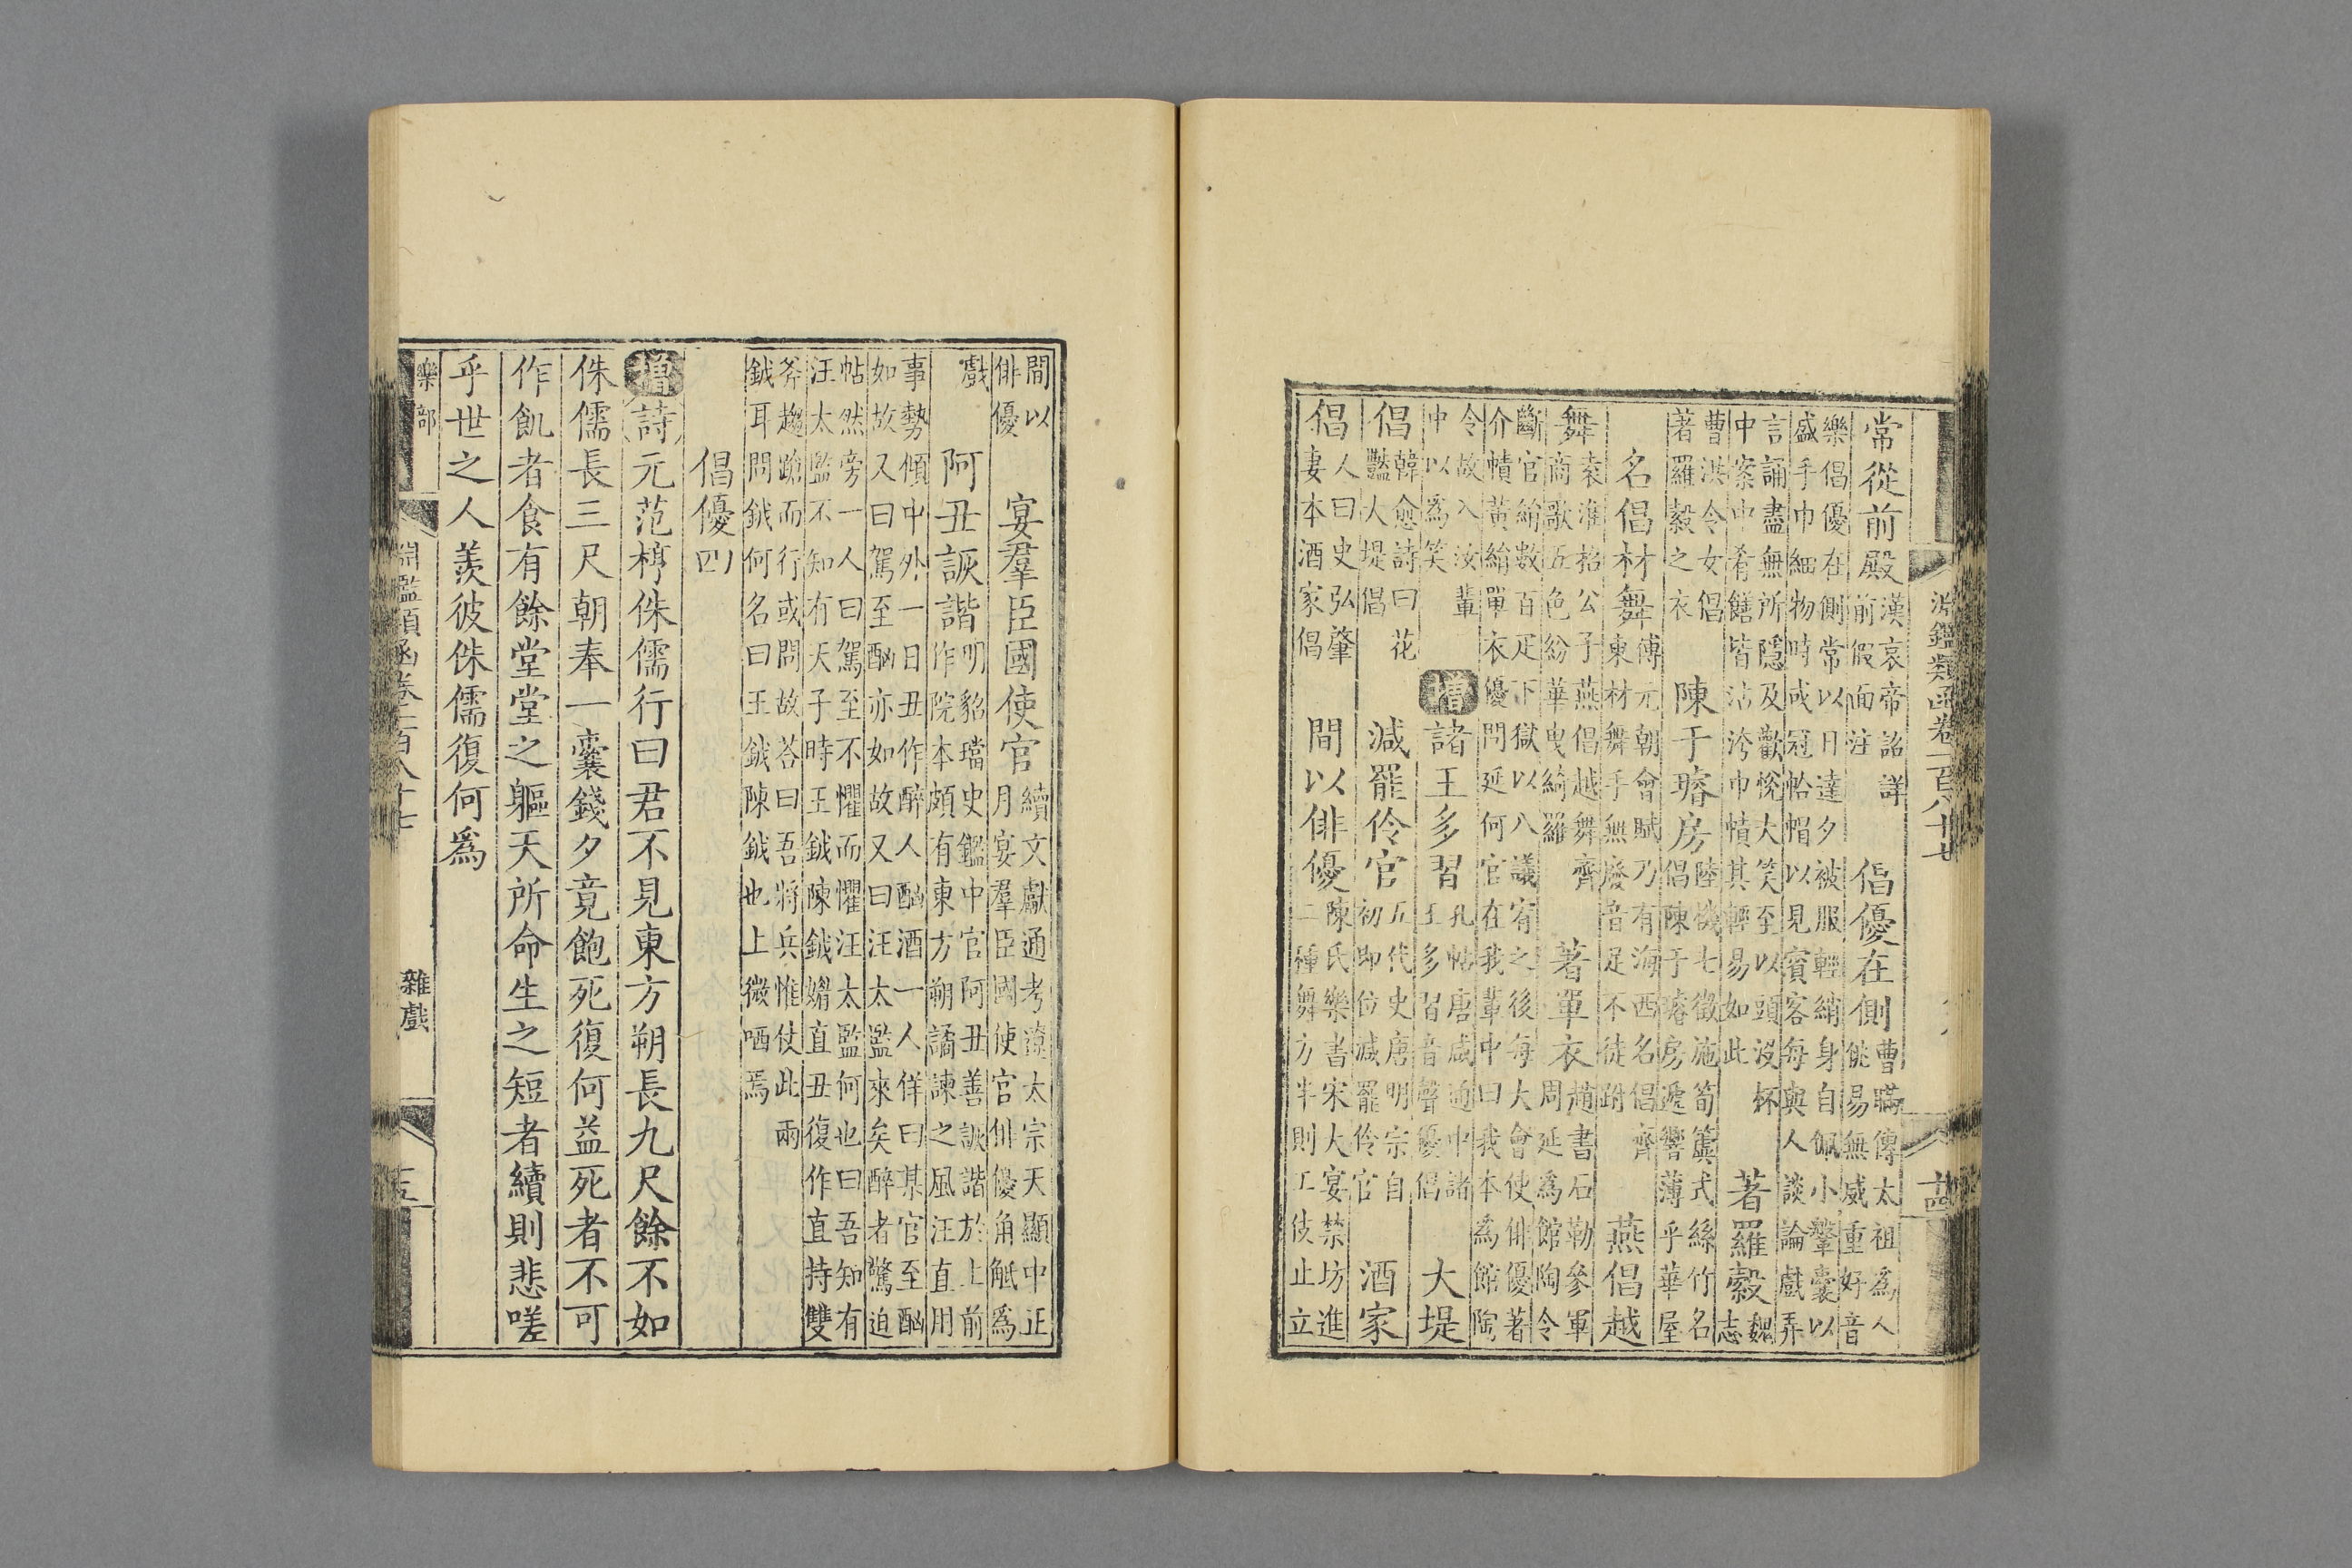 淵鑑類函卷一百八十七
十四
常從前殿漢哀帝詔詳前假面注 倡優在側曹瞞傳太祖為人佻易無威重好音
樂倡優在側常以日達夕被服輕綃身自佩小鞶囊以
盛手巾細物時或冠帢帽以見賓客每與人談論戲弄
言誦盡無所隱及歡悅大笑至以頭沒杯
中案中肴饍皆沾洿巾幘其輕易如此 著羅縠魏志
曹洪令女倡著羅縠之衣 陳于璿房陸機七徵施筍簴式絲竹名倡陳于璿房遞響薄乎華屋
名倡材舞傅元朝會賦乃有海西名倡齊東材舞手無廢音足不徒跗 燕倡越
舞袁淮招公子燕倡越舞齊商歌五色紛華曳綺羅 著單衣趙書石勒參軍周延爲館陶令
斷官絹數百疋下獄以八議宥之後每大會使俳優著
介幘黃絹單衣優問延何官在我輩中曰我本爲館陶
令故入汝輩中以爲笑 增諸王多習孔帖唐咸通中諸王多習音聲優倡 大堤
倡韓愈詩曰花豔大堤倡 減罷伶官五代史唐明宗自初即位減罷伶官 酒家
倡人曰史弘肇妻本酒家倡 間以俳優陳氏樂書宋大宴禁坊進二種舞方半則工伎止立
間以俳優 宴羣臣國使官續文獻通考遼太宗天顯中正月宴羣臣國使官俳優角觝爲
戲 阿丑詼諧明貂璫史鑑中官阿丑善詼諧於上前作院本頗有東方朔譎諫之風汪直用
事勢傾中外一日丑作醉人酗酒一人佯曰某官至酗
如故又曰駕至酗亦如故又曰汪太監來矣醉者驚迫
帖然旁一人曰駕至不懼而懼汪太監何也曰吾知有
汪太監不知有天子時王鉞陳鉞媚直丑復作直持雙
斧趨蹌而行或問故荅曰吾將兵惟仗此兩
鉞耳問鉞何名曰王鉞陳鉞也上微哂焉
倡優四
增詩元范梈侏儒行曰君不見東方朔長九尺餘不如
侏儒長三尺朝奉一囊錢夕竟飽死復何益死者不可
作飢者食有餘堂堂之軀天所命生之短者續則悲嗟
乎世之人羨彼侏儒復何爲
樂部
淵鑑類函卷一百八十七
雜戲